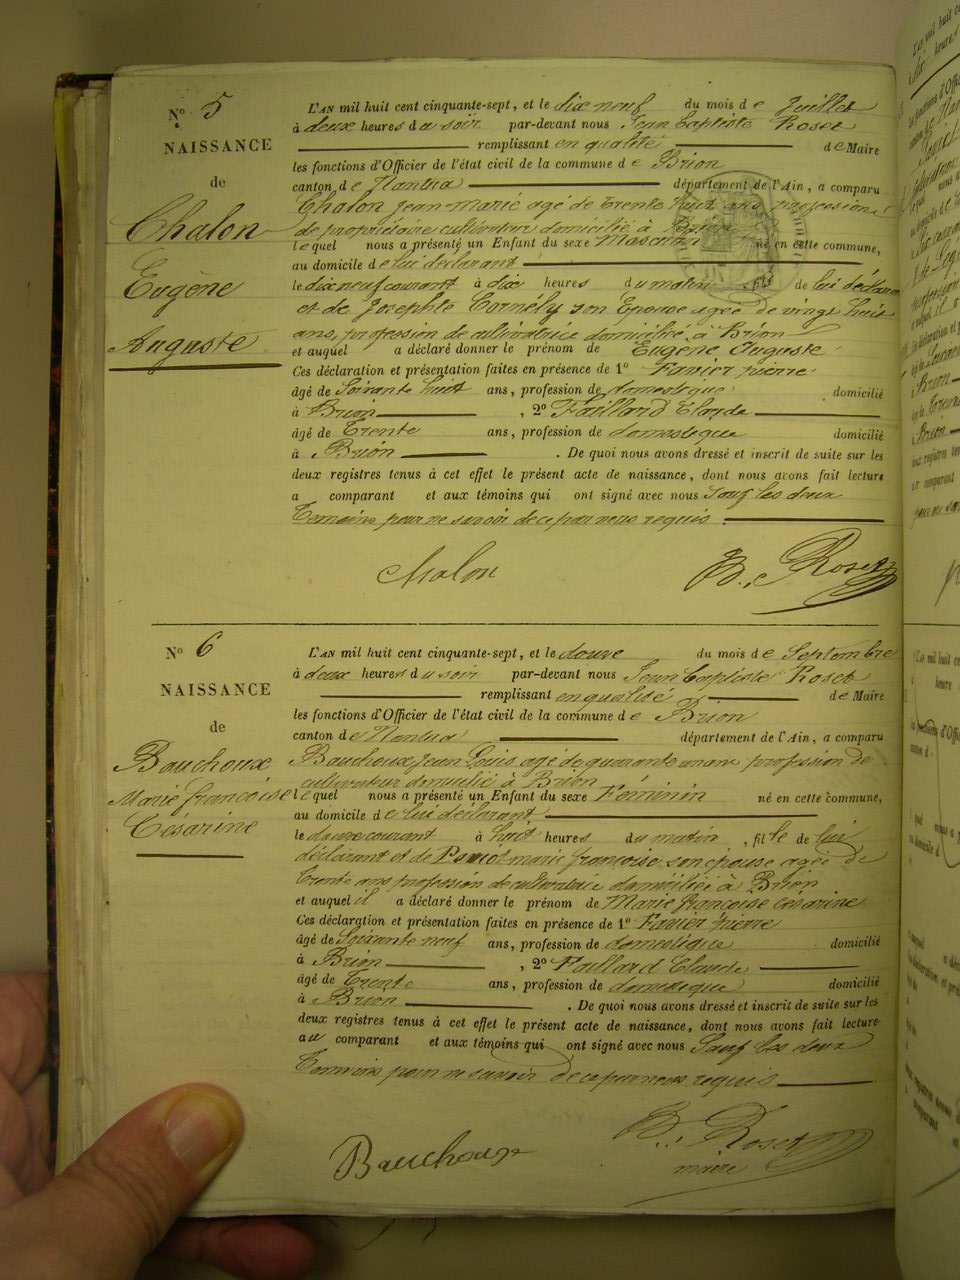 N° 5
NAISSANCE
de
Chalon
Eugène
Auguste
L'AN mil huit cent cinquante-sept, et le dix neuf du mois de Juillet
à deux heures du soir par-devant nous Jean Baptiste Roset
remplissant en qualité de Maire
les fonctions d'Officier de l'état civil de la commune de Brion
canton de Nantua département de l'Ain, a comparu
Chalon Jean-Marie agé de trente huit ans profession
de propriétaire cultivateur domicilié à Brion
lequel nous a présenté un Enfant du sexe Masculin né en cette commune,
au domicile de lui déclarant
le dix neuf courant à dix heures du matin, fils de lui déclarant
et de Josephte Cornély son Epouse agée de vingt huit
ans, profession de cultivatrice domiciliée à Brion
et auquel a déclaré donner le prénom de Eugène Auguste
Ces déclaration et présentation faites en présence de 1° Favier pierre
âgé de Soixante huit ans, profession de domestique domicilié
à Brion, 2° Paillard Claude
âgé de Trente ans, profession de domestique domicilié
à Brion. De quoi nous avons dressé et inscrit de suite sur les
deux registres tenus à cet effet le présent acte de naissance, dont nous avons fait lecture
a comparant et aux témoins qui ont signé avec nous Sauf les deux
Temoins pour ne savoir de ce par nous requis.
Chalon
B. Roset
N° 6
NAISSANCE
de
Bauchoux
Marie françoise
Césarine
L'AN mil huit cent cinquante-sept, et le douze du mois de Septembre
à deux heures du soir par-devant nous Jean Baptiste Roset
remplissant en qualité de Maire
les fonctions d'Officier de l'état civil de la commune de Brion
canton de Nantua département de l'Ain, a comparu
Jean Louis agé de quarante un ans profession de
cultivateur domicilié à Brion
lequel nous a présenté un Enfant du sexe Féminin né en cette commune,
au domicile de lui déclarant
le douze courant à huit heures du matin, fille de lui
déclarant et de marie françoise son épouse agée de
Trente ans profession de cultivatrice domiciliée à Brion
et auquel il a déclaré donner le prénom de Marie françoise césarine
Ces déclaration et présentation faites en présence de 1° Favier pierre
âgé de Soixante neuf ans, profession de domestique domicilié
à Brion, 2° Paillard Claude
âgé de Trente ans, profession de domestique domicilié
à Brion. De quoi nous avons dressé et inscrit de suite sur les
deux registres tenus à cet effet le présent acte de naissance, dont nous avons fait lecture
au comparant et aux témoins qui ont signé avec nous Sauf les deux
Temoins pour ne savoir de ce par nous requis
Bauchoux
B. Roset
maire